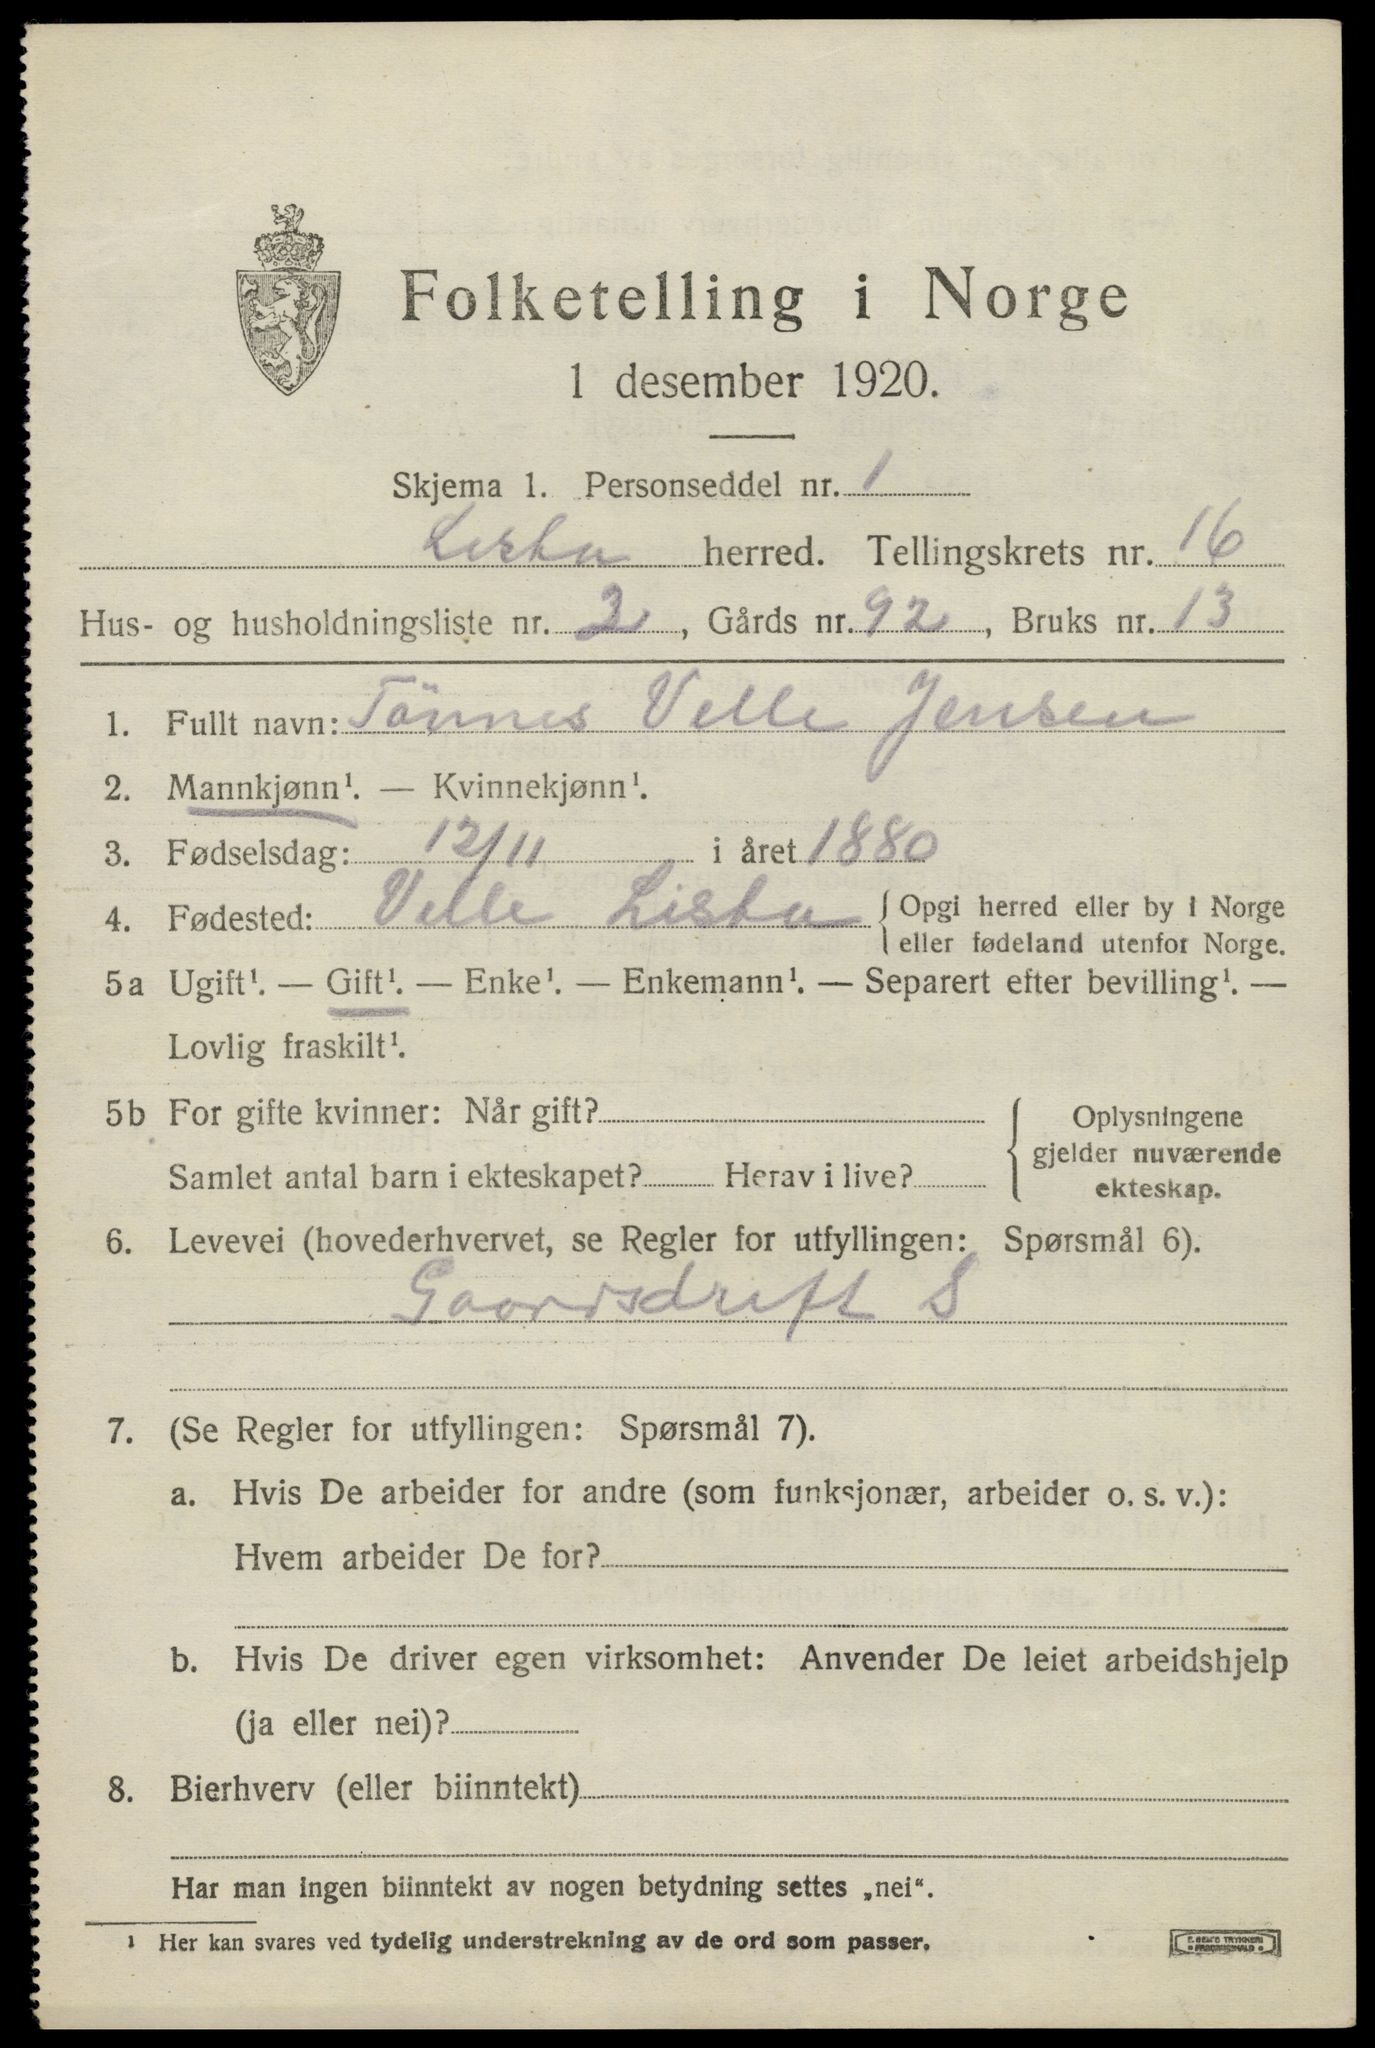 Folketelling i Norge
1 desember 1920.
Skjema 1. Personseddel nr. 1
Lista herred. Tellingskrets nr. 16
Hus- og husholdningsliste nr. 2, Gårds nr. 92, Bruks nr. 13
1. Fullt navn: Tönnes Velle Jensen
2. Mannkjønn¹. — Kvinnekjønn¹.
3. Fødselsdag: 12/11 i året 1880
4. Fødested: Velle Lista { Opgi herred eller by i Norge
eller fødeland utenfor Norge.
5a Ugift¹. — Gift¹. — Enke¹. — Enkemann¹. — Separert efter bevilling¹. —
Lovlig fraskilt¹.
5b For gifte kvinner: Når gift?
Samlet antal barn i ekteskapet? Herav i live?
Oplysningene
gjelder nuværende
ekteskap.
6. Levevei (hovederhvervet, se Regler for utfyllingen: Spørsmål 6).
Gaardsdrift S
7. (Se Regler for utfyllingen: Spørsmål 7).
a. Hvis De arbeider for andre (som funksjonær, arbeider o. s. v.):
Hvem arbeider De for?
b. Hvis De driver egen virksomhet: Anvender De leiet arbeidshjelp
(ja eller nei)?
8. Bierhverv (eller biinntekt)
Har man ingen biinntekt av nogen betydning settes „nei“.
¹ Her kan svares ved tydelig understrekning av de ord som passer.